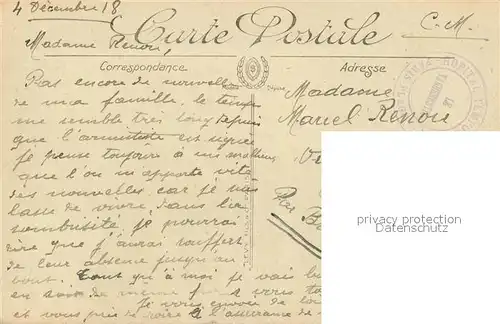 4 Décembre 18
C.-M.
Carte Postale
Madame Renou,
Correspondance
Adresse
Pas encore de nouvelles
de ma famille, le temps
me semble très long depuis
que l'armistice est signé
je pense toujours à
que l'on m'apporte vite
des nouvelles car je suis
de vivre dans la
je pourrai
dire que j'aurai souffert
de leur absence jusqu'au
bout. Tant qu'à moi je vais
en de même pour vous
Je vous envoie de
et vous prie de croire à l'assurance de
Madame
Marcel Renou
Par
HOPITAL
privacy protection